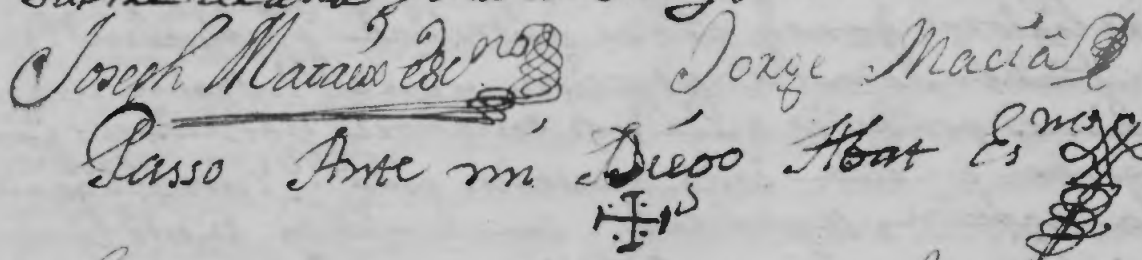 Joseph Mataix esc^no Jorge Maciâ
Passo Ante mi Diego Abat Es^no